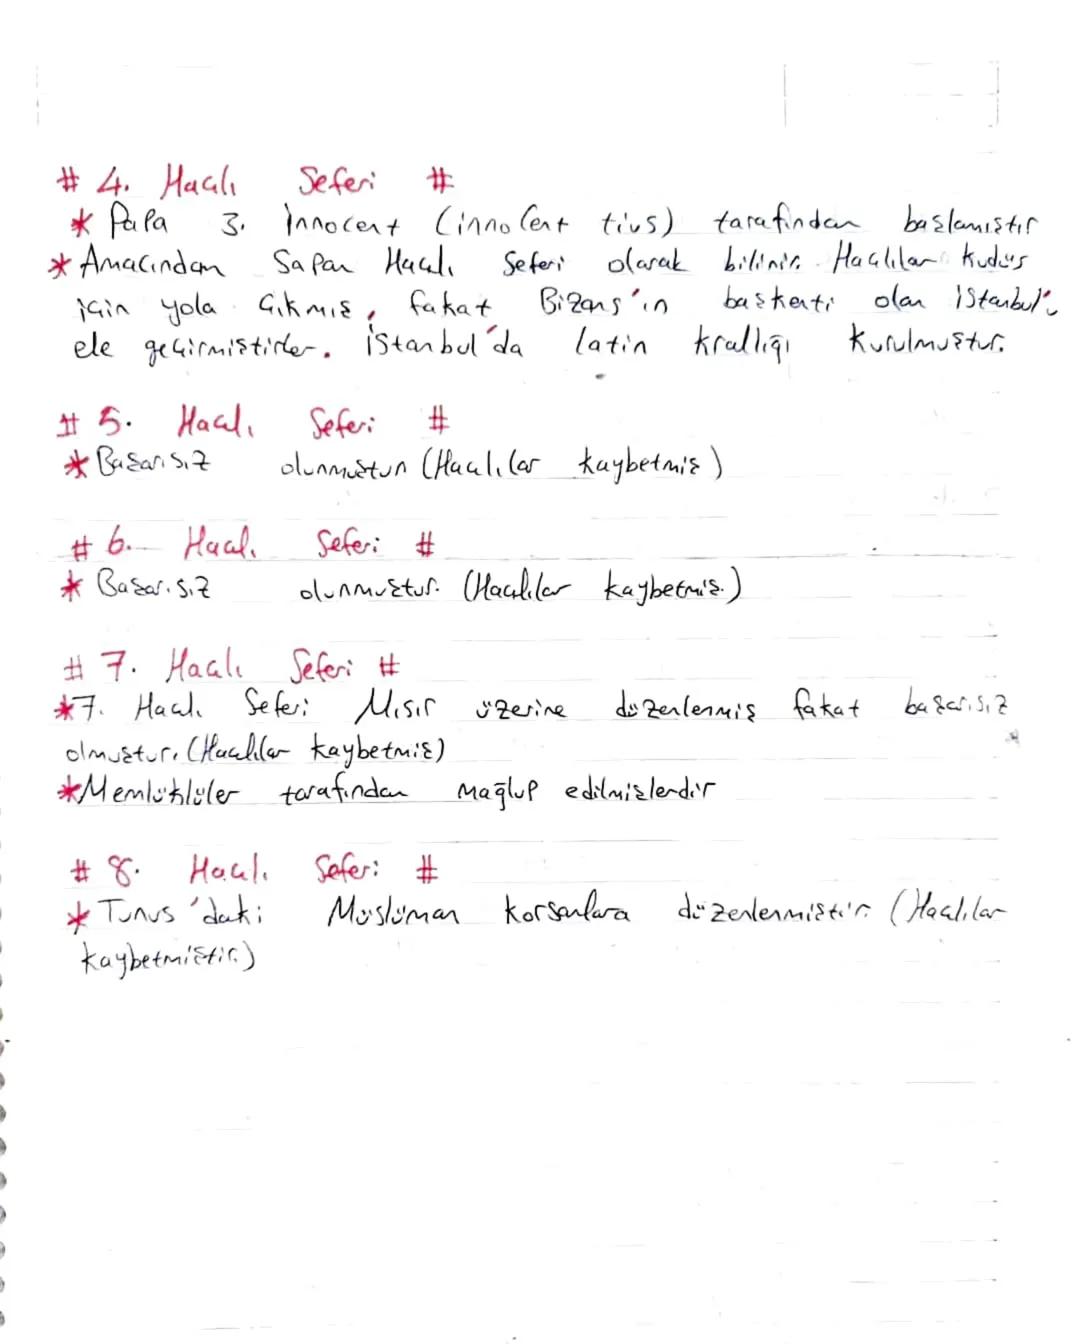 # 4. Haçlı Seferi #
* Papa 3. İnnocent (innocent tius) tarafından başlamıştır
* Amacından Sapan Haçlı Seferi olarak bilinir. Haçlılar Kudüs
için yola Çıkmış, fakat Bizans'ın başkenti olan İstanbul'u
ele geçirmiştirler. İstanbul'da latin krallığı Kurulmuştur.
# 5. Haçlı Seferi #
* Başarısız olunmuştur (Haçlılar kaybetmiş)
# 6. Haçlı Seferi #
* Başarısız olunmuştur. (Haçlılar kaybetmiş.)
# 7. Haçlı Seferi #
*7. Haçlı Seferi Mısır üzerine düzenlenmiş fakat başarısız
olmuştur. (Haçlılar kaybetmiş)
*Memlüklüler tarafından mağlup edilmişlerdir
# 8. Haçlı Seferi #
* Tunus'daki Müslüman korsanlara düzenlenmiştir. (Haçlılar
kaybetmiştir.)